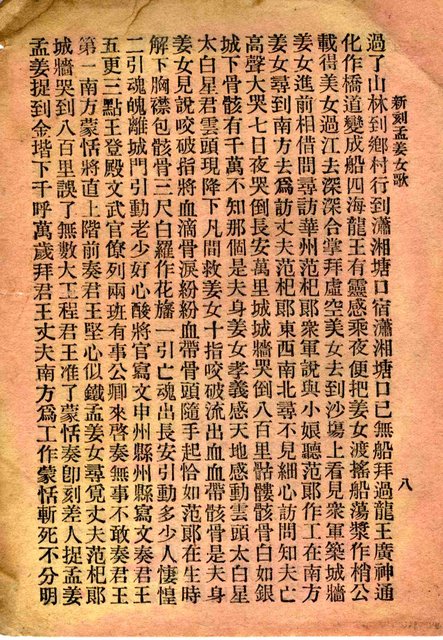 新刻孟姜女歌
八
過了山林到鄉村行到瀟湘塘口宿瀟湘塘口已無船拜過龍王廣神通
化作橋道變成船四海龍王有靈感乘夜便把姜女渡搖船蕩漿作梢公
載得美女過江去深深合掌拜虛空美女去到沙塲上看見衆軍築城牆
姜女進前相借問尋訪華州范杞郎衆軍說與小娘聽范郎作工在南方
姜女尋到南方去爲訪丈夫范杞郎東西南北尋不見細心訪問知夫亡
高聲大哭七日夜哭倒長安萬里城城牆哭倒八百里骷髏骸骨白如銀
城下骨骸有千萬不知那個是夫身姜女孝義感天地感動雲頭太白星
太白星君雲頭現降下凡間救姜女十指咬破流出血血帶骸骨是夫身
姜女見說咬破指將血滴骨淚紛紛血帶骨頭隨手起恰如范郎在生時
解下胸襟包骸骨三尺白羅作花旛一引亡魂出長安引動多少人悽惶
二引魂魄離城門引動老少好心酸將官寫文申州縣州縣寫文奏君王
五更三點王登殿文武官僚列兩班有事公卿來啓奏無事不敢奏君王
第一南方蒙恬將直上階前奏君王君王堅心似鐵孟姜女尋覓丈夫范杞郎
城牆哭到八百里誤了無數大工程君王准了蒙恬奏卽刻差人捉孟姜
孟姜捉到金堦下千呼萬歲拜君王丈夫南方爲工作蒙恬斬死不分明